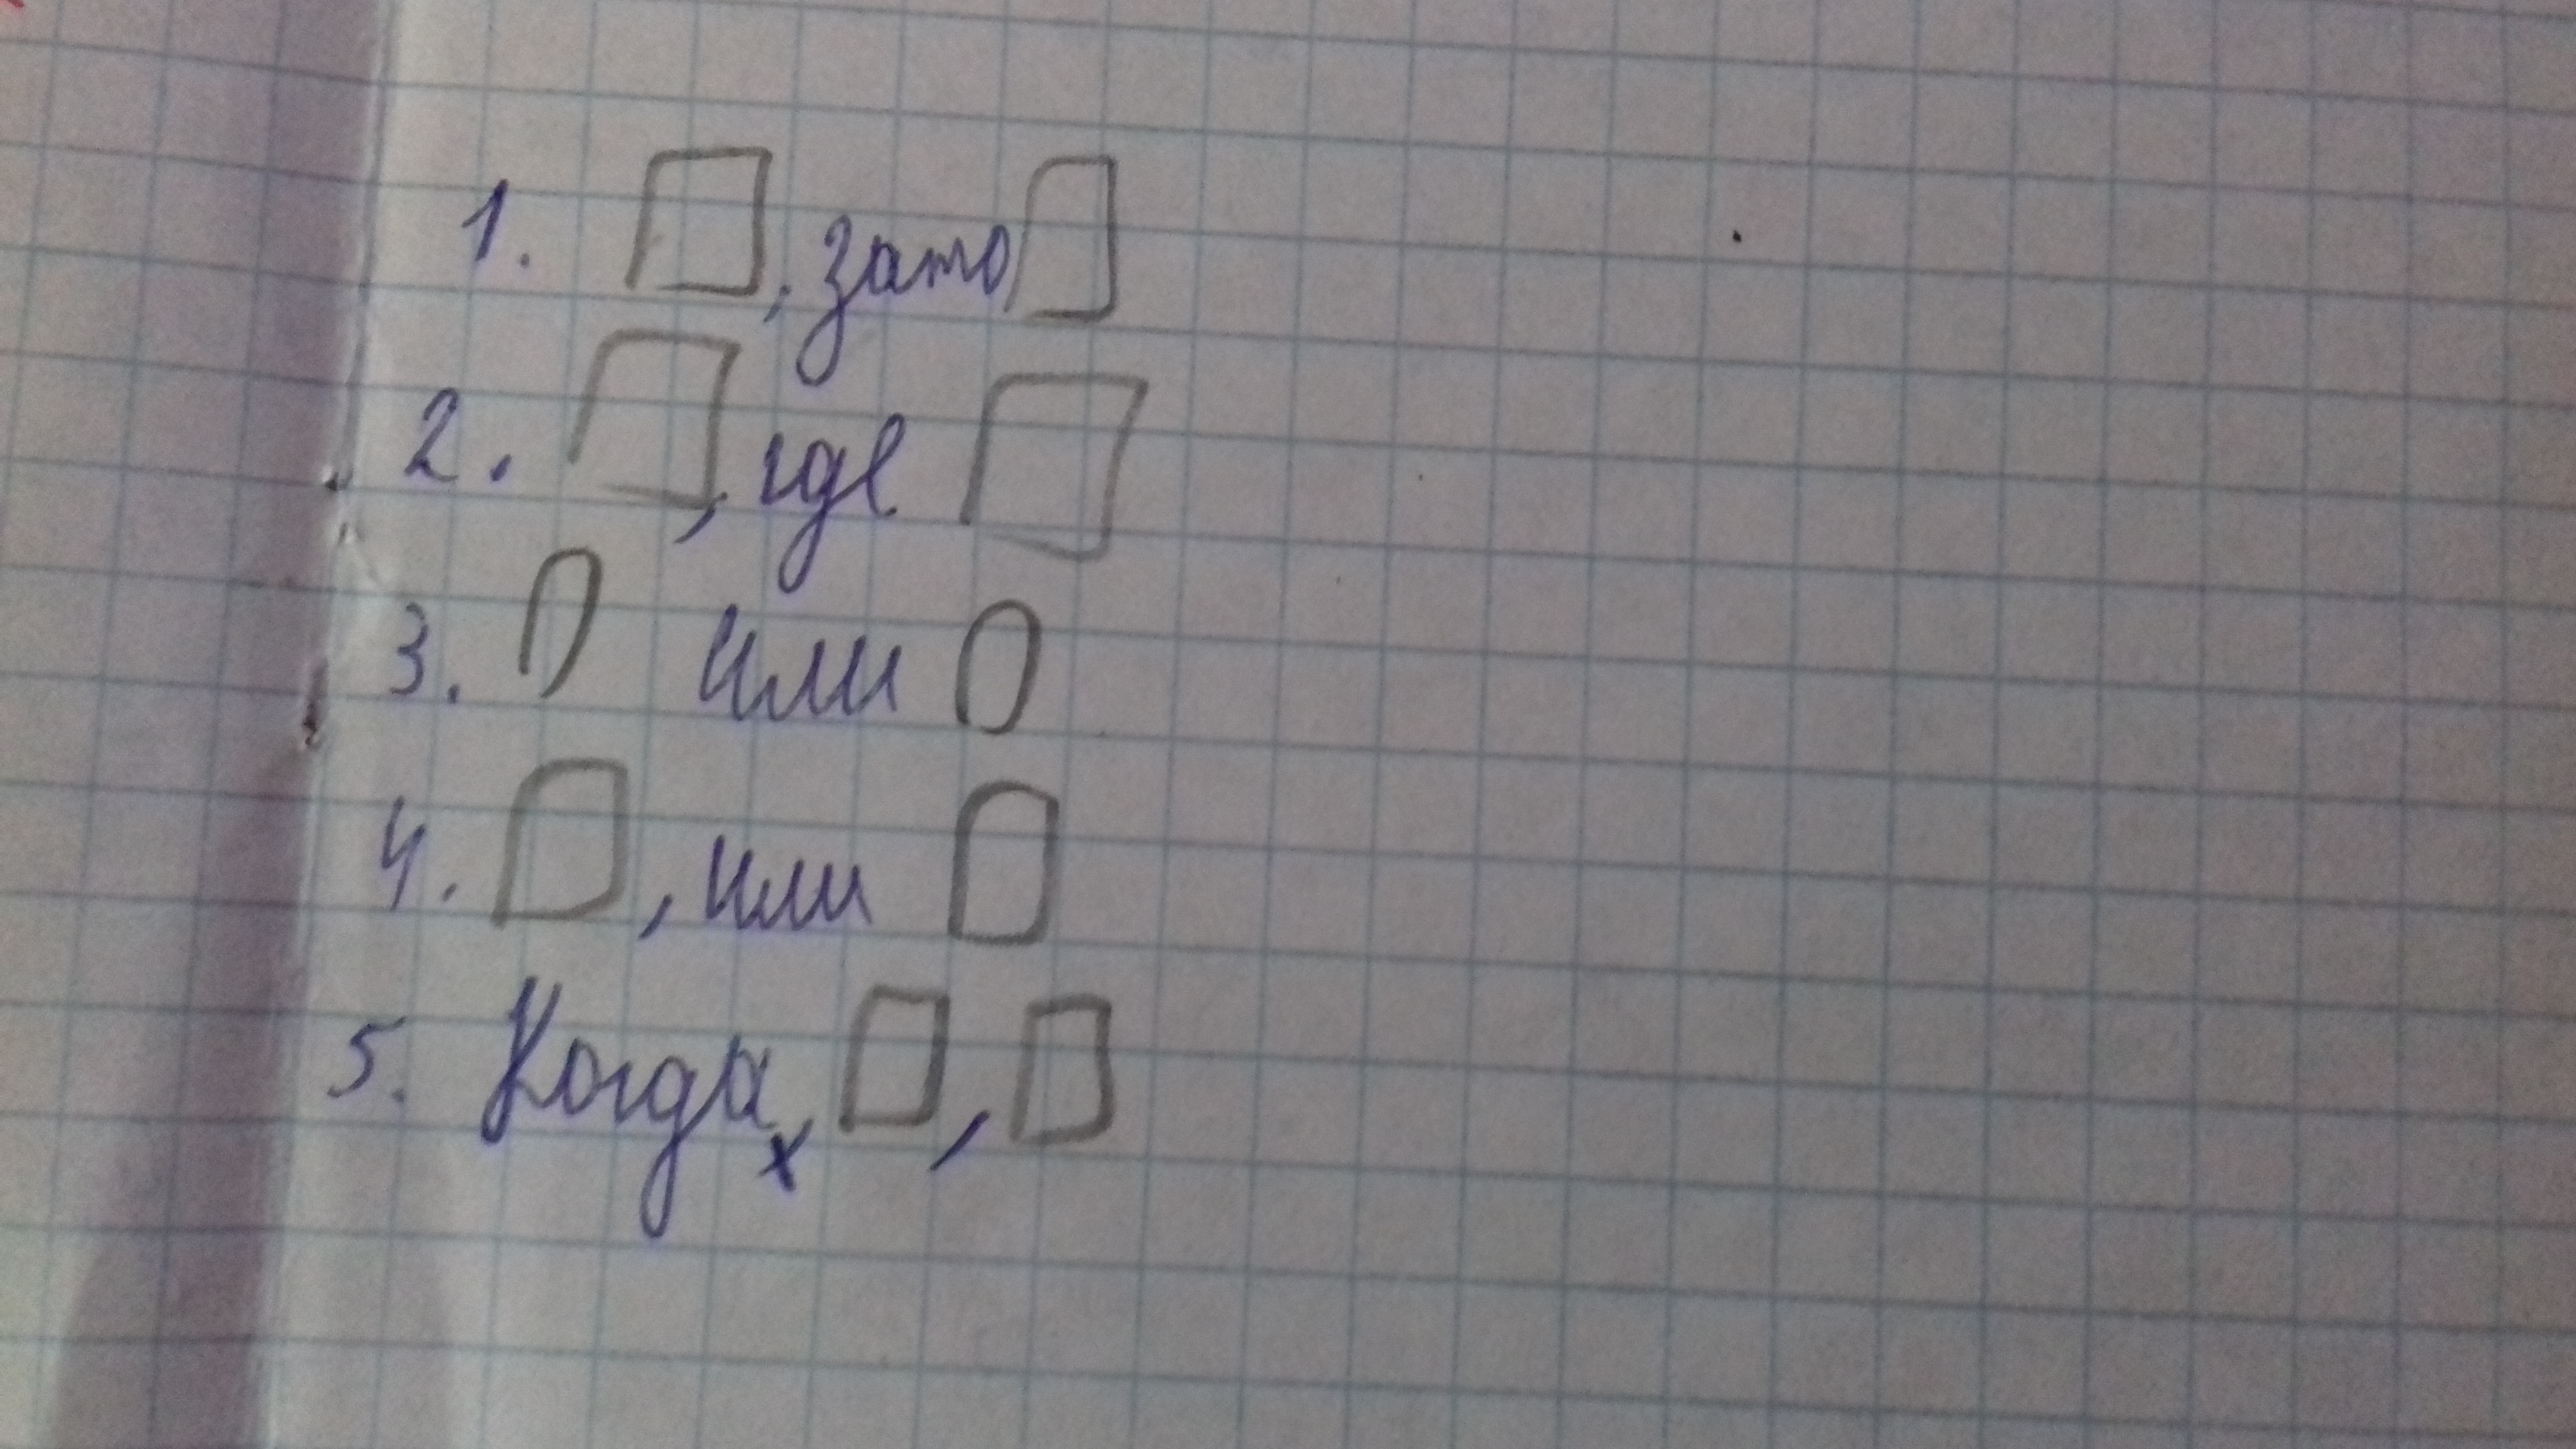 1. , зато
2. , где
3. или
4. , или
5. Когда, ,